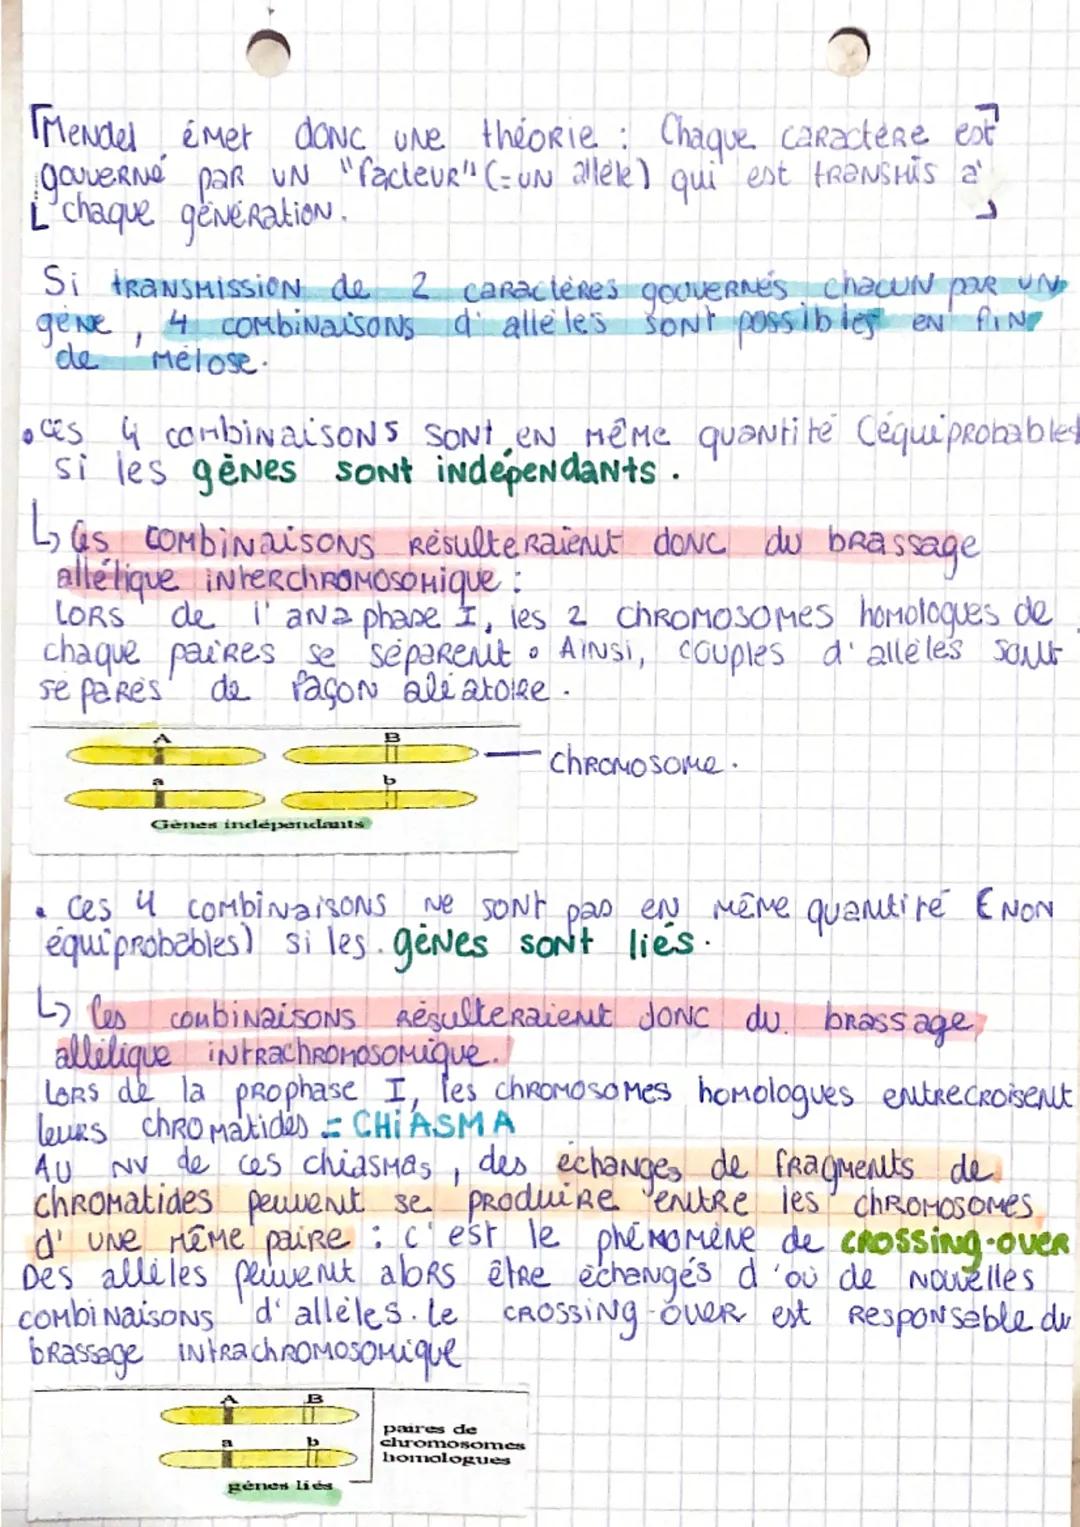 Mendel émet donc une théorie : Chaque caractère est
gouverné par un "facteur" (=un allèle) qui est transmis à
chaque génération.
Si transmission de 2 caractères gouvernés chacun par un
gène, 4 combinaisons d'allèles sont possibles en fin
de méiose.
• ces 4 combinaisons sont en même quantité (équiprobables
si les gènes sont indépendants.
↳ Ces combinaisons résulteraient donc du brassage
allélique interchromosomique :
Lors de l'anaphase I, les 2 chromosomes homologues de
chaque paires se séparent. Ainsi, couples d'allèles sont
séparés de façon aléatoire.
A B
chromosome.
a b
Gènes indépendants
• ces 4 combinaisons ne sont pas en même quantité (non
équiprobables) si les gènes sont liés.
↳ les combinaisons résulteraient donc du brassage
allélique intrachromosomique.
Lors de la prophase I, les chromosomes homologues entrecroisent
leurs chromatides = CHIASMA
Au nv de ces chiasmas, des échanges de fragments de
chromatides peuvent se produire entre les chromosomes
d'une même paire : c'est le phénomène de crossing-over
Des allèles peuvent alors être échangés d'où de nouvelles
combinaisons d'allèles. Le crossing-over est responsable du
brassage intrachromosomique
A B
a b
paires de
chromosomes
homologues
gènes liés